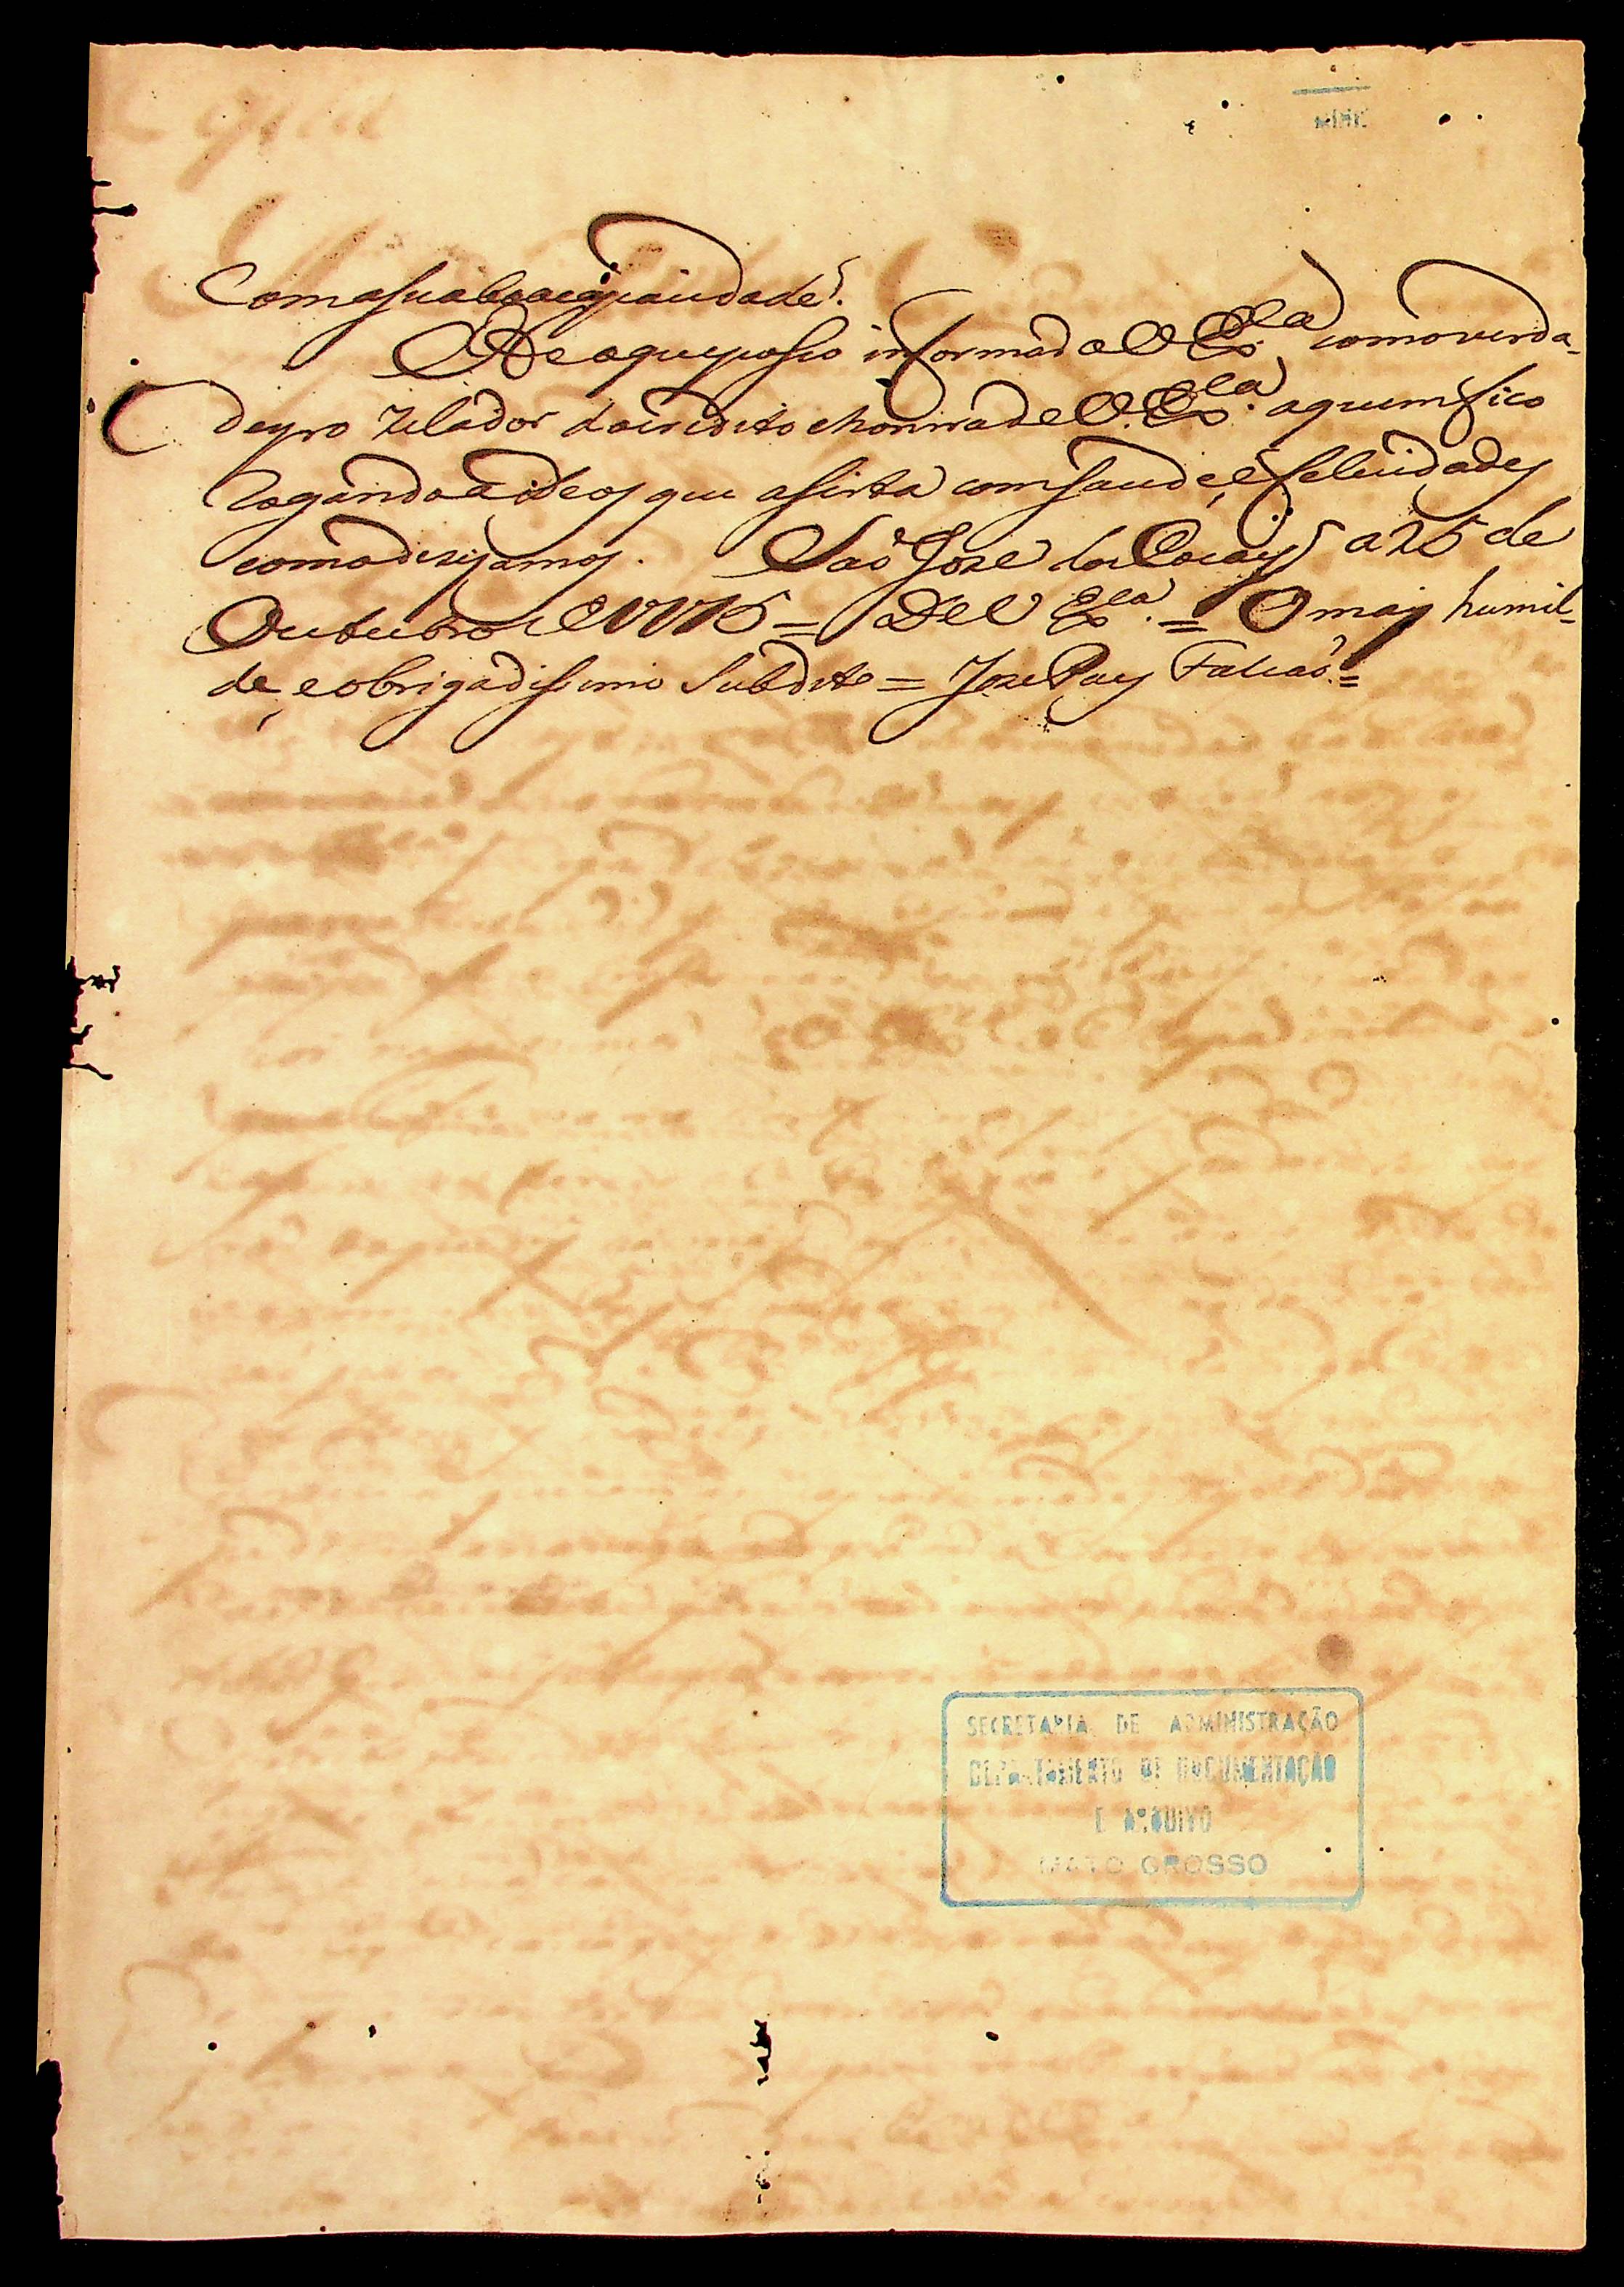 Com a sua boa capacidade.
He o que posso informar a V Exª como verda-
deyro zelador do credito e honrra de V. Exª. a quem fico
rogando a Deos que asista com saude, e felecidades
como dezejamos. Saó Joze dos Cocaes a 25 de
Outubro de 1775 = De V Exª. = O mais humil-
de, e obrigadissimo Subdito = Joze Paes Falcaó =
SECRETARIA DE ADMINISTRAÇÃO
DEPARTAMENTO DE DOCUMENTAÇÃO
E ARQUIVO
MATO GROSSO